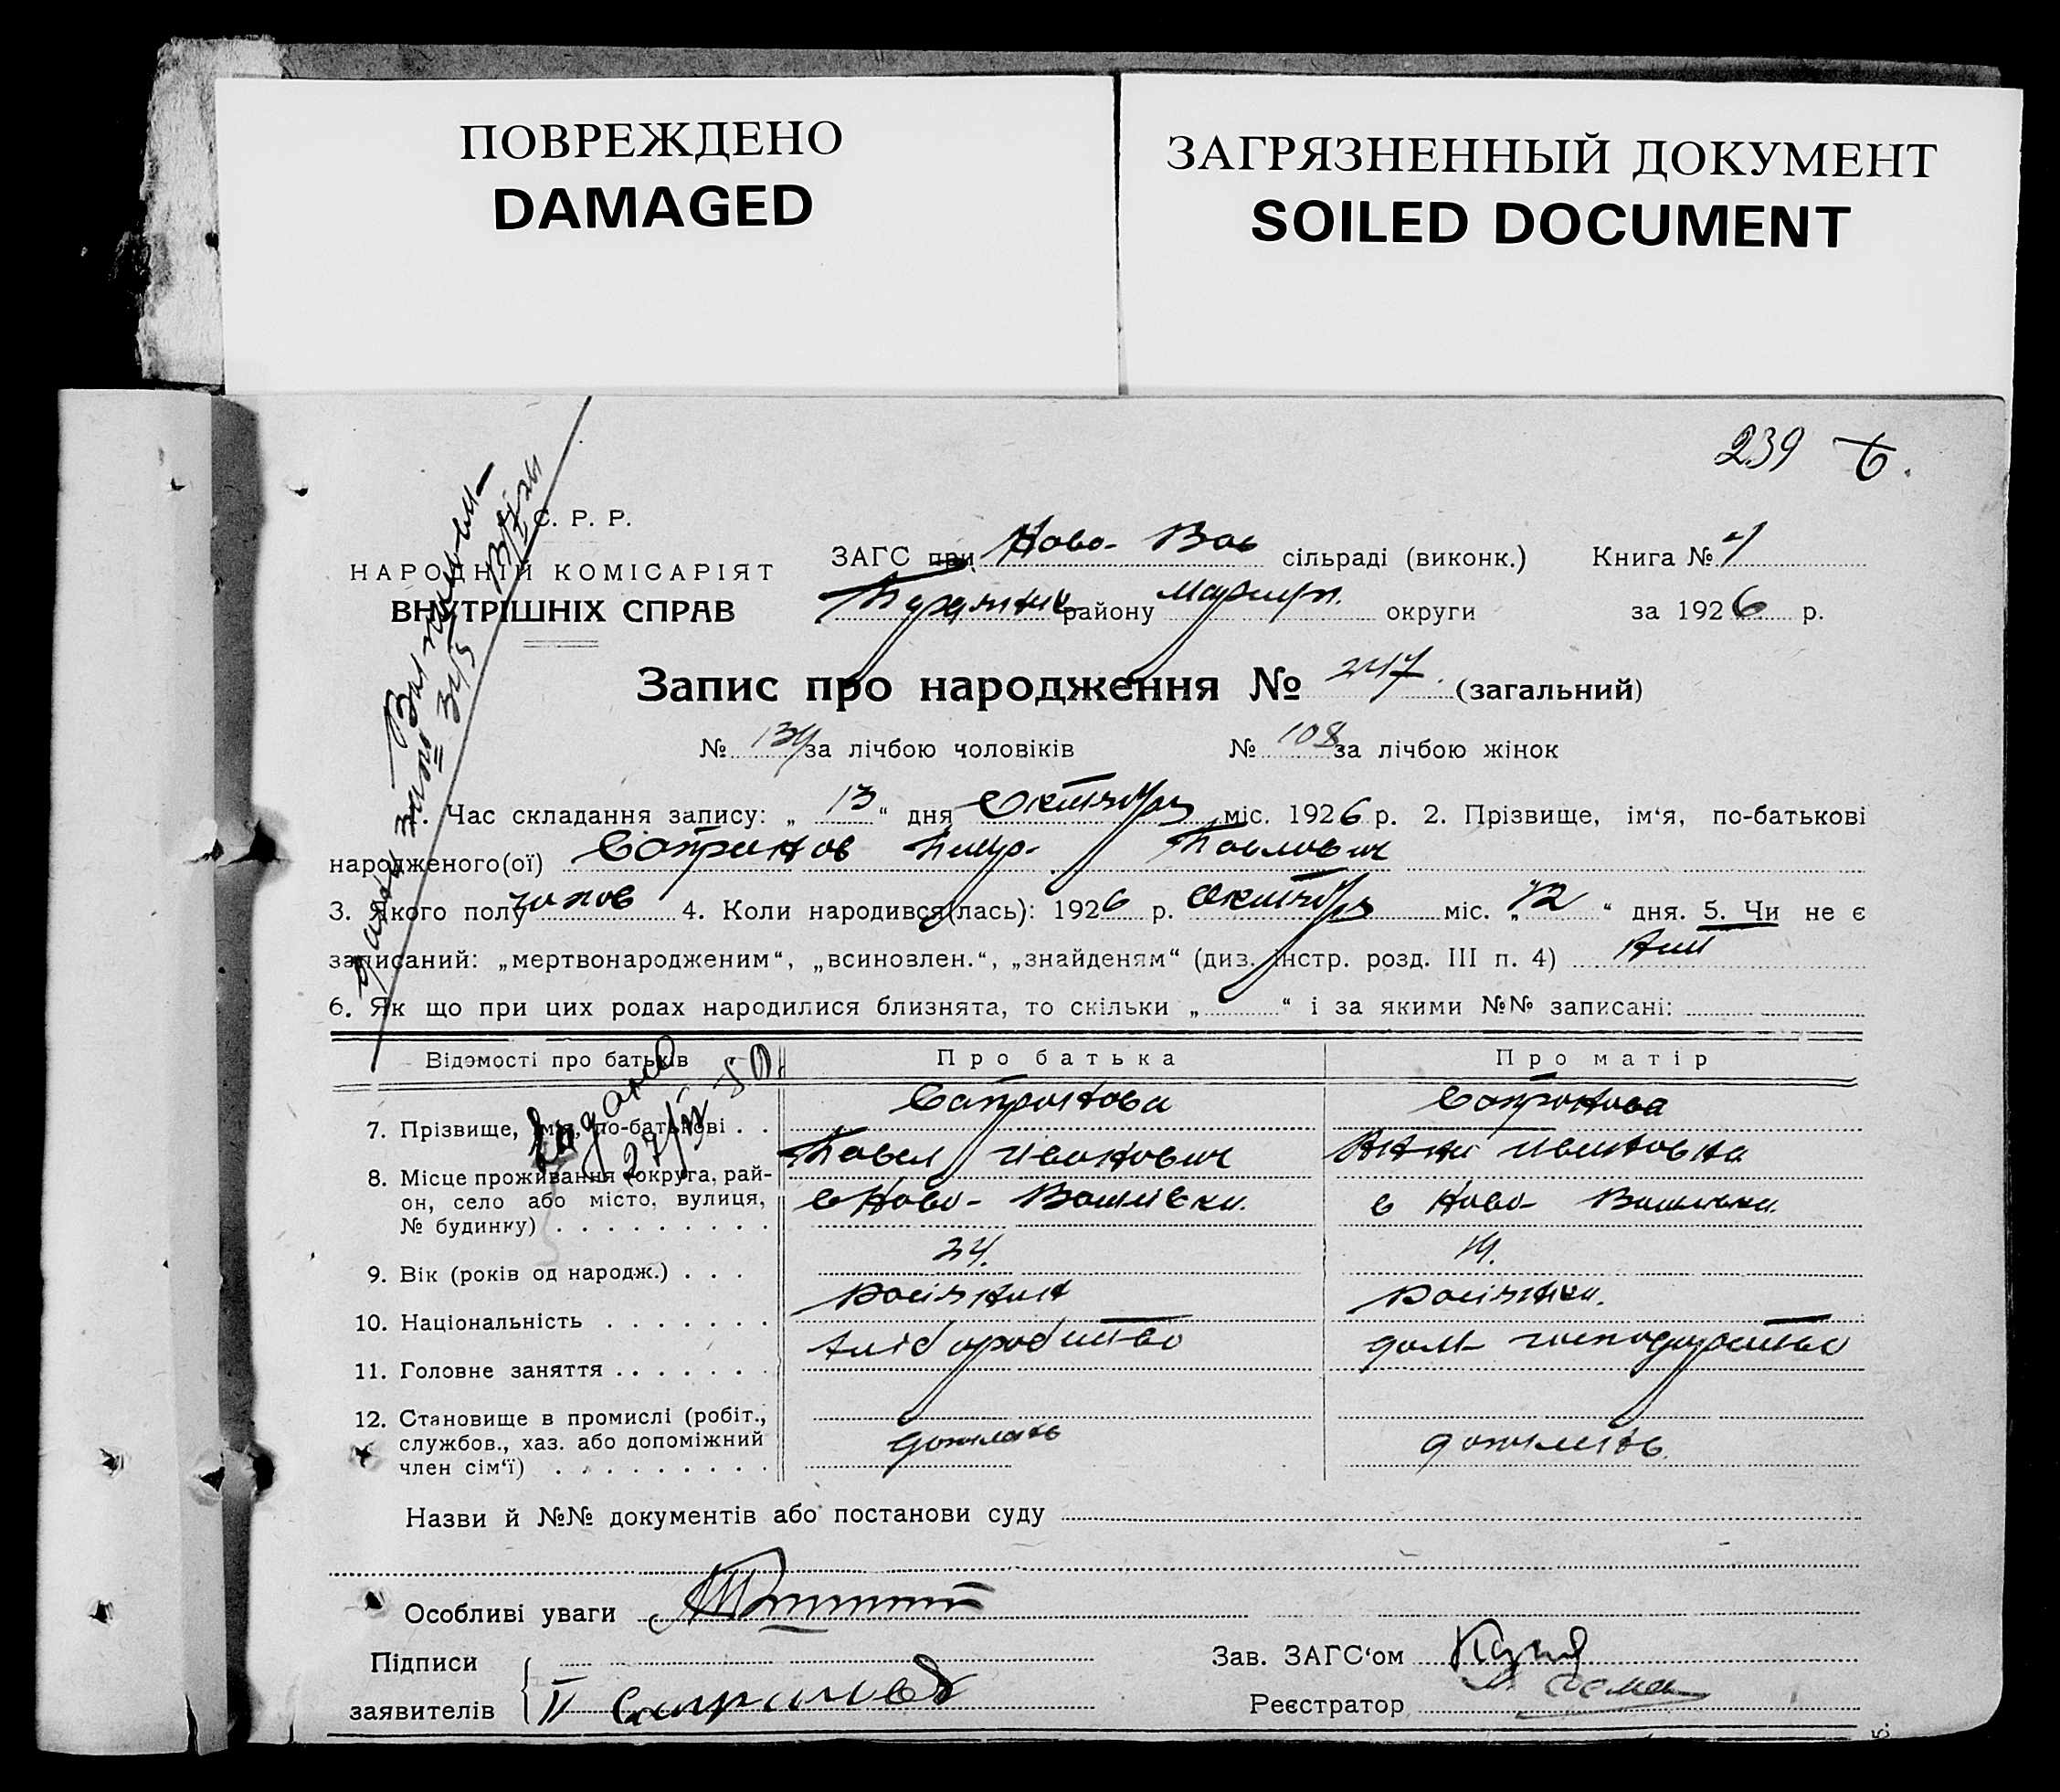 ПОВРЕЖДЕНО
DAMAGED
ЗАГРЯЗНЕННЫЙ ДОКУМЕНТ
SOILED DOCUMENT
239
С. Р. Р.
НАРОДНІЙ КОМІСАРІЯТ
ВНУТРІШНІХ СПРАВ
ЗАГС при Ново- Вас сільраді (виконк.) Книга №
району Маріуп. округи за 1926 р.
Запис про народження № 247 (загальний)
№ 139 за лічбою чоловіків № 108 за лічбою жінок
1. Час складання запису: „ 13 “ дня Октября міс. 1926 р. 2. Прізвище, ім‘я, по-батькові
народженого(ої) Сапронов Петр Павлович
3. Якого полу чолов 4. Коли народився(лась): 1926 р. Октября міс. „ 12 “ дня. 5. Чи не є
записаний: „мертвонародженим“, „всиновлен.“, „знайденям“ (див. інстр. розд. III п. 4) Ні
6. Як що при цих родах народилися близнята, то скільки „ “ і за якими №№ записані:
Відомості про батьків Про батька Про матір
Сапронова Сапронова
7. Прізвище, імя, по-батькові . . Павел Иванович Анна Ивановна
8. Місце проживання (округа, рай-
он, село або місто, вулиця, с Ново- Василівки с Ново- Василівки
№ будинку)
9. Вік (років од народж.) . . . 24. 19.
10. Національність Росіянин Росіянка.
11. Головне заняття Хліборобство дом- господарство
12. Становище в промислі (робіт.,
службов., хаз. або допоміжний
член сім‘ї)
Видано
27/IV 50
Назви й №№ документів або постанови суду
Особливі уваги
Підписи
заявителів П Сапронов
Зав. ЗАГС‘ом
Реєстратор